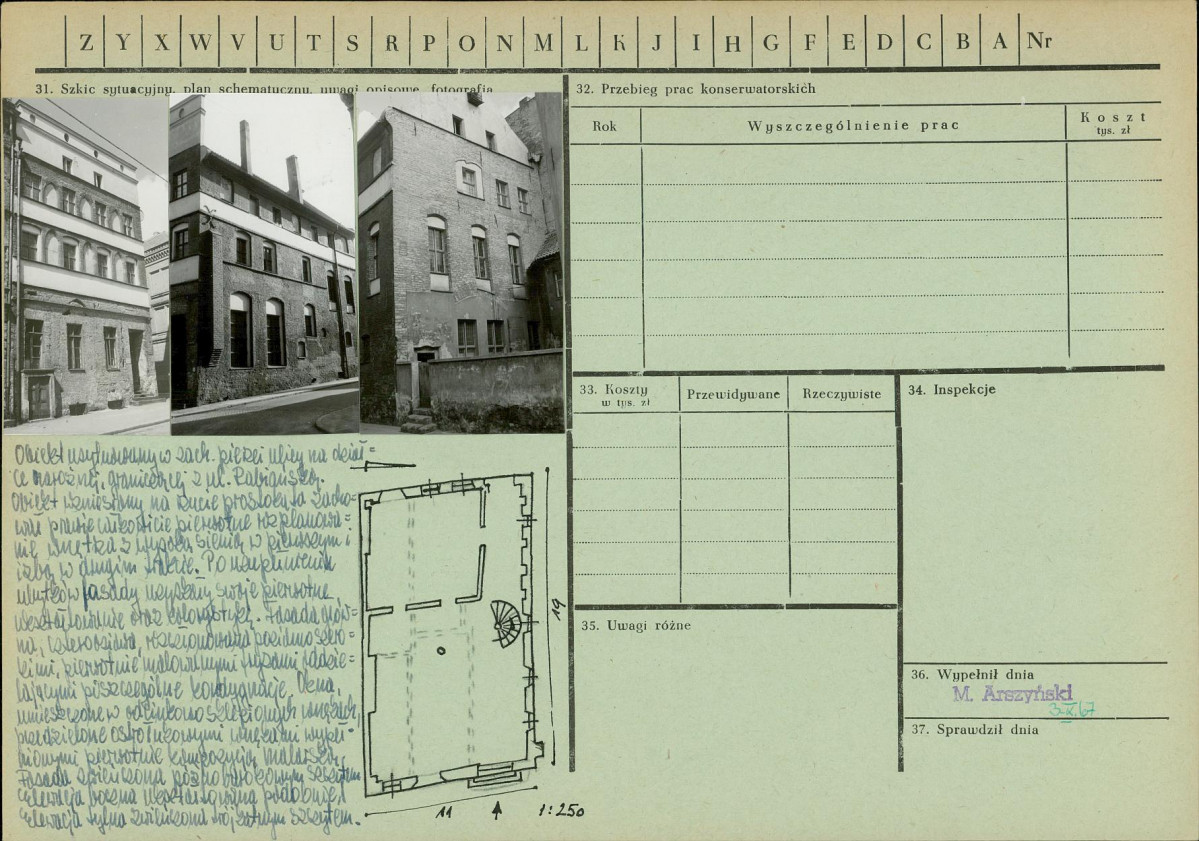 Z Y X W V U T S R P O N M L K J I H G F E D C B A Nr
31. Szkic sytuacyjny, plan schematyczny, uwagi opisowe, fotografia
Obiekt usytuowany w zach. pierzei ulicy na dział=
ce narożnej, graniczącej z ul. Rabiańską.
Obiekt wzniesiony na rzucie prostokąta zacho=
wał prawie całkowicie pierwotne rozplanowa=
nie wnętrza z wysoką sienią w pierwszym i
izbą w drugim trakcie. Po uzupełnieniu
ubytków fasady uzyskały swoje pierwotne
ukształtowanie oraz kolorystykę. Fasada głów=
na, czteroosiowa, rozczłonkowana poziomo szero=
kimi, pierwotnie malowanymi fryzami oddzie=
lającymi poszczególne kondygnacje. Okna,
umieszczone w odcinkowo sklepionych wnękach,
przedzielone ostrołukowymi wnękami wypeł=
nionymi pierwotnie kompozycją malarską.
Fasada zwieńczona późnobarokowym szczytem
elewacja boczna ukształtowana podobnie,
elewacja tylna zwieńczona trójkątnym szczytem.
19
11
1:250
32. Przebieg prac konserwatorskich
Rok
Wyszczególnienie prac
Koszt
tys. zł
33. Koszty
w tys. zł
Przewidywane
Rzeczywiste
34. Inspekcje
35. Uwagi różne
36. Wypełnił dnia
M. Arszyński
3.X.67
37. Sprawdził dnia